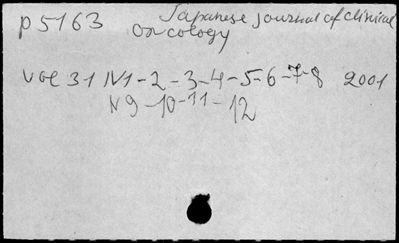 p5163 Japanese journal of clinical
oncology
Vol 31 N1-2-3-4-5-6-7-8 2001
N9-10-11-12